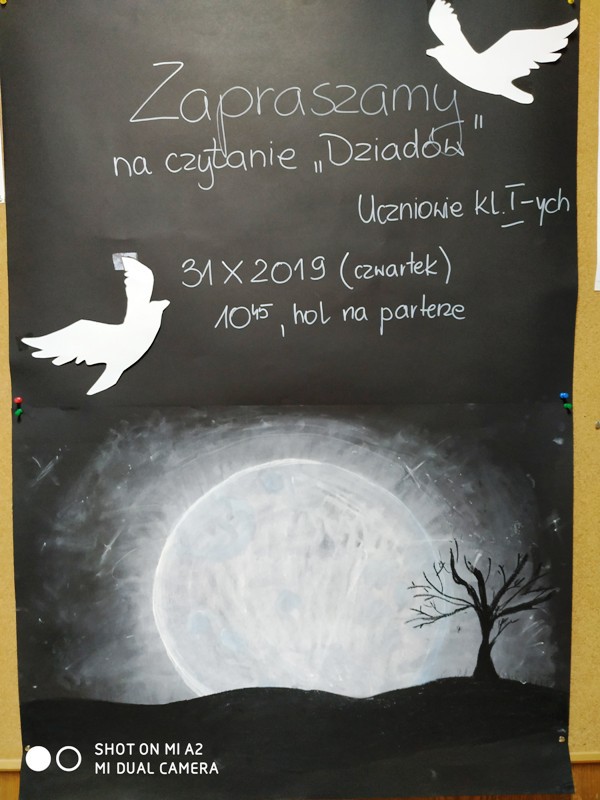 Zapraszamy
na czytanie „Dziadów"
Uczniowie kl. I-ych
31 X 2019 (czwartek)
10⁴⁵, hol na parterze
SHOT ON MI A2
MI DUAL CAMERA